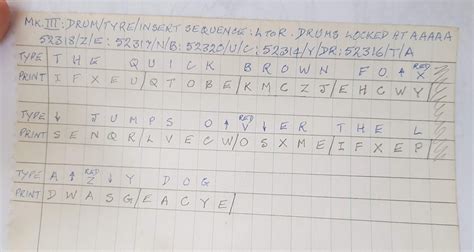 MK.III: DRUM/TYPE/INSERT SEQUENCE: L TO R. DRUMS LOCKED AT AAAAA
52318/Z/E: 52317/N/B: 52320/U/C: 52314/Y/DR: 52316/T/A
TYPE T H E Q U I C K B R O W N F O ↑ RED X
PRINT I F X E U / Q T O B E / K M C Z J / E H C W Y
TYPE ↓ J U M P S O ↑ RED V ↓ E R T H E L
PRINT S E N Q R / L V E C W / O S X M E / I F X E P
TYPE A ↑ RED Z ↓ Y D O G
PRINT D W A S G / E A C Y E /